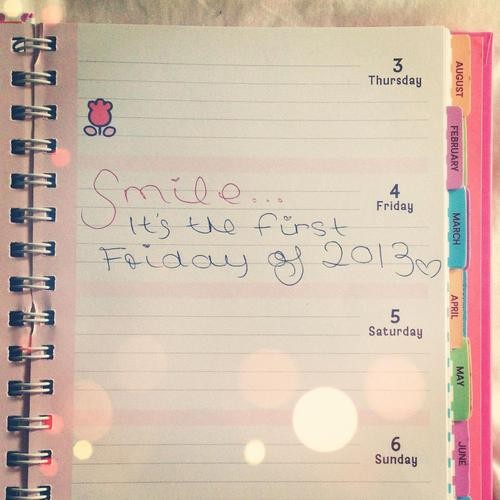 3
Thursday
Smile...
4
Friday
It's the first
Friday of 2013
5
Saturday
6
Sunday
AUGUST
FEBRUARY
MARCH
APRIL
MAY
JUNE